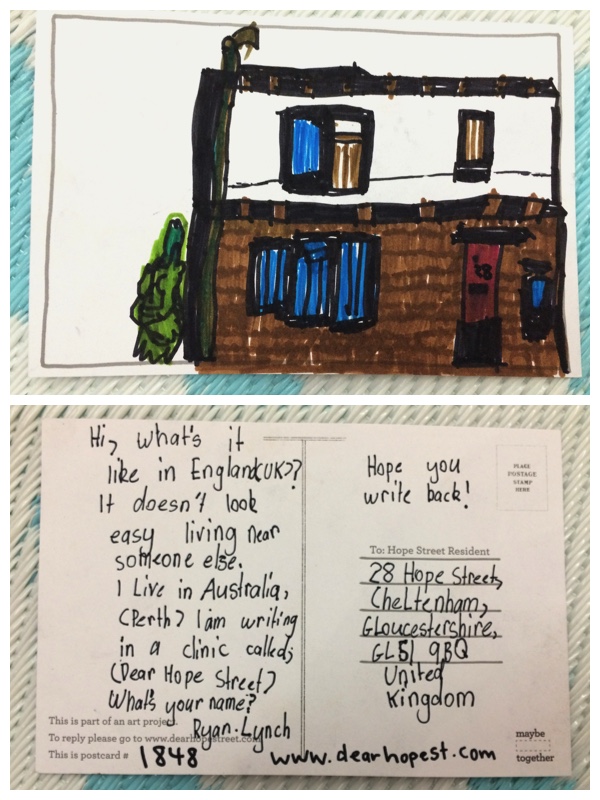 28
Hi, what's it
like in England(UK)?
It doesn't look
easy living near
someone else.
I Live in Australia,
(Perth) I am writing
in a clinic called;
(Dear Hope Street)
What's your name?
Ryan.Lynch
This is part of an art project.
To reply please go to www.dearhopestreet.com
This is postcard # 1848
www.dearhopest.com
Hope you
write back!
PLACE
POSTAGE
STAMP
HERE
To: Hope Street Resident
28 Hope Street,
Cheltenham,
Gloucestershire,
GL51 9BQ
United
Kingdom
maybe
together